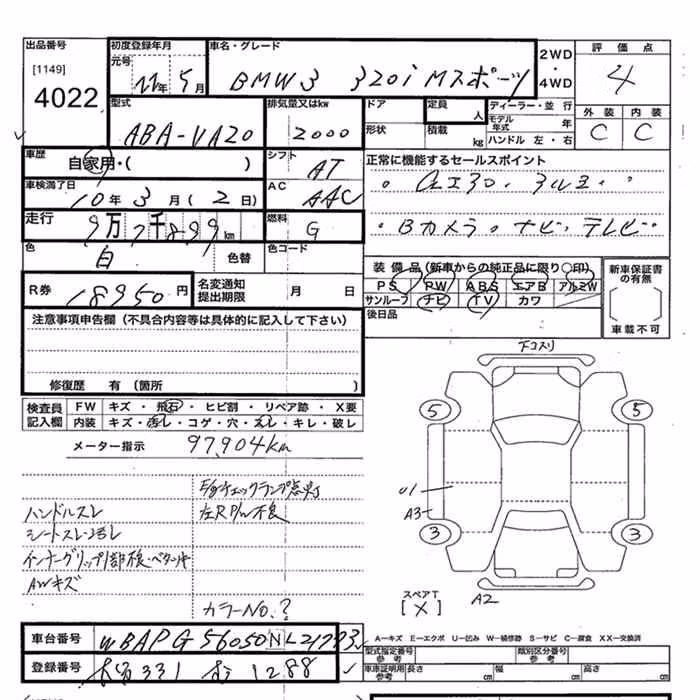 出品番号
[1149]
4022
初度登録年月
元号
22年 5月
車名・グレード
BMW3 320i Mスポーツ
2WD
・
4WD
評価点
4
型式
ABA-VA20
排気量又はkw
2000
ドア
形状
定員
人
積載
kg
ディーラー・並 行
モデル年式 年
ハンドル 左・右
外装 内装
C C
車歴
自家用・( )
シフト
AT
正常に機能するセールスポイント
車検満了日
10年 3月 (2日)
AC
AAC
Bカメラ・ナビ・テレビ・
走行
9万7千899km
燃料
G
色
白
色替
色コード
装備品(新車からの純正品に限り○印)
PS PW ABS エアB アルミW
サンルーフ ナビ TV カワ
新車保証書の有無
車載不可
R券
18950円
名変通知提出期限
月 日
後日品
注意事項申告欄(不具合内容等は具体的に記入して下さい)
修復歴 有 (箇所 )
下コスリ
検査員記入欄
FW キズ・飛石・ヒビ割・リペア跡・X要
内装 キズ・汚レ・コゲ・穴・スレ・キレ・破レ
メーター指示
97,904km
5 5
E/gチェックランプ点灯
ハンドルスレ
左RP/W不良
U1
A3
シートスレ・ヨゴレ
3 3
インナーグリップ1部不良・ベタツキ
AWキズ
スペアT
[X]
A2
カラーNo.?
車台番号
WBAPG56050NL21773
A—キズ E—エクボ U—凹み W—補修跡 S—サビ C—腐食 XX—交換済
型式指定番号 参考
類別区分番号 参考
登録番号
331 1288
車両証明用 参考
長さ cm 幅 cm 高さ cm